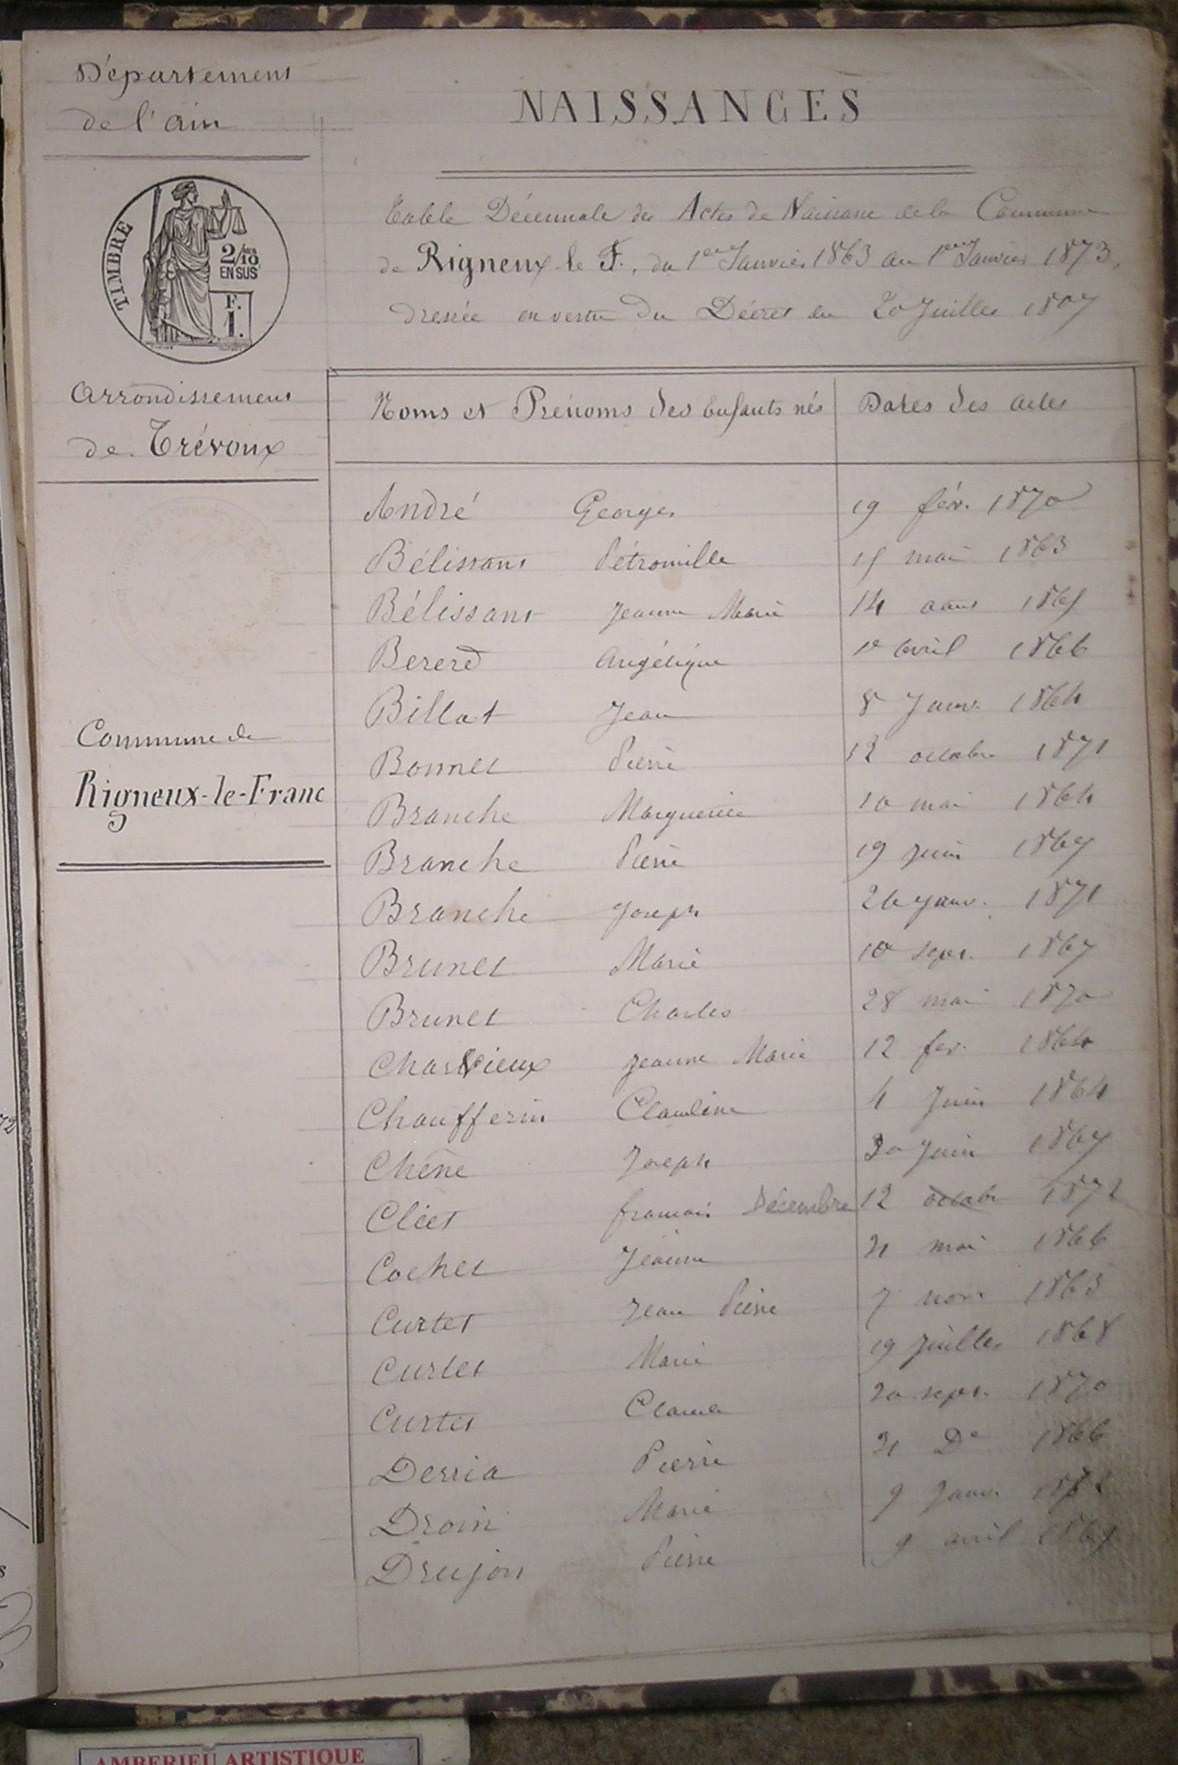 Département
de l'ain
NAISSANCES
TIMBRE
2/10
EN SUS
F.
1.
Table Décennale des Actes de Naissance de la Commune
de Rigneux le F., du 1er Janvier 1863 au 1er Janvier 1873,
dressée en vertu du Décret du 20 Juillet 1807
Arrondissement
de Trévoux
Commune de
Rigneux-le-Franc
Noms et Prénoms des Enfants nés Dates des actes
André Georges 19 fév. 1870
Bélissant Pétronille 15 mai 1863
Bélissant Jeanne Marie 14 aout 1865
Bererd Angélique 10 avril 1866
Billat Jean 8 Janv. 1864
Bonnet Pierre 12 octobre 1871
Branche Marguerite 10 mai 1864
Branche Pierre 19 juin 1867
Branche Joseph 26 janv. 1871
Brunet Marie 10 sept. 1867
Brunet Charles 28 mai 1870
Charvieux Jeanne Marie 12 fev. 1864
Chaufferin Claudine 4 Juin 1864
Chêne Joseph 30 Juin 1867
Cléet francois Décembre 12 octob 1872
Cochet Jeanne 21 mai 1866
Curtet Jean Pierre 7 nov. 1863
Curtet Marie 19 Juillet 1868
Curtet Claude 20 sept. 1870
Derria Pierre 21 De 1866
Droin Marie 9 Janv.
Drujon Pierre 9 avril 1869
AMBERIEU ARTISTIQUE